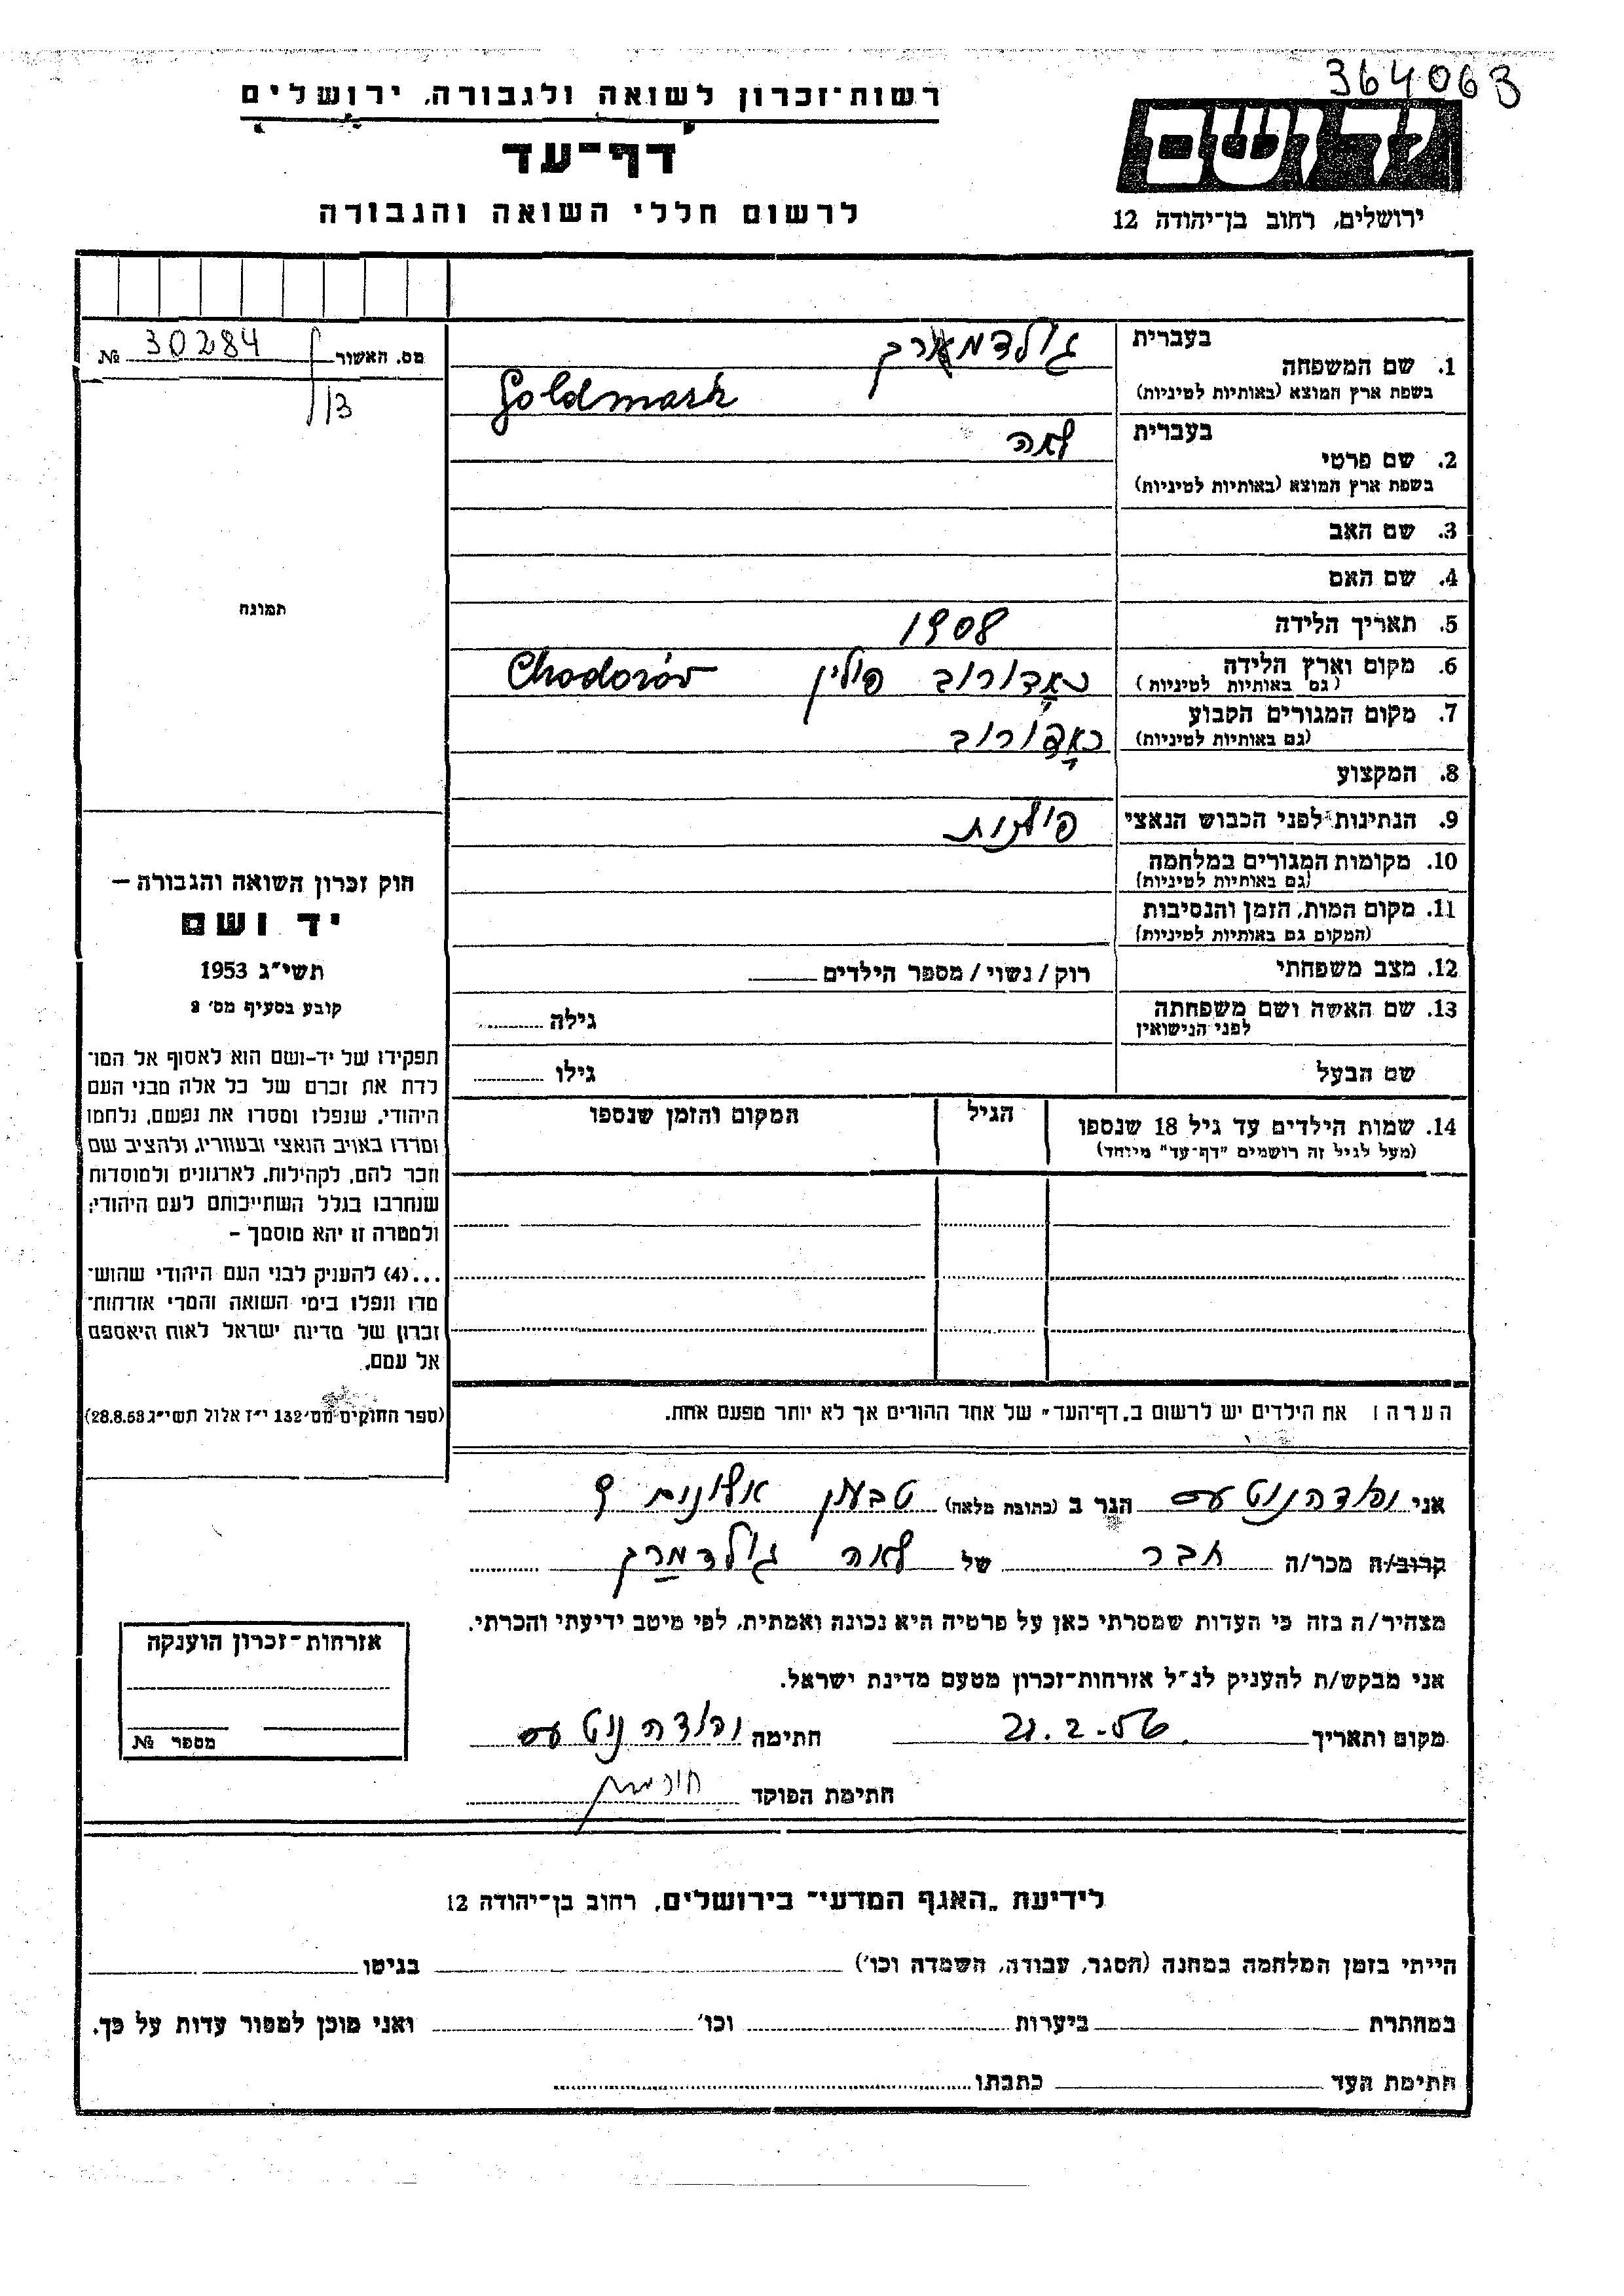 364063
רשות-זכרון לשואה ולגבורה, ירושלים
יד ושם
דף-עד
ירושלים, רחוב בן-יהודה 12
לרשום חללי השואה והגבורה
מס. האשור 30284 №
13
1. שם המשפחה
בעברית גולדמארק
בשפת ארץ המוצא (באותיות לטיניות) Goldmark
2. שם פרטי
בעברית לאה
בשפת ארץ המוצא (באותיות לטיניות)
3. שם האב
4. שם האם
תמונה
5. תאריך הלידה 1908
6. מקום וארץ הלידה כאָדורוב פולין Chodorów
(גם באותיות לטיניות)
7. מקום המגורים הקבוע כאָדורוב
(גם באותיות לטיניות)
8. המקצוע
9. הנתינות לפני הכבוש הנאצי פולנית
10. מקומות המגורים במלחמה
(גם באותיות לטיניות)
11. מקום המות, הזמן והנסיבות
(המקום גם באותיות לטיניות)
12. מצב משפחתי רוק / נשוי / מספר הילדים
13. שם האשה ושם משפחתה גילה
לפני הנישואין
שם הבעל גילו
14. שמות הילדים עד גיל 18 שנספו הגיל המקום והזמן שנספו
(מעל לגיל זה רושמים "דף-עד" מיוחד)
חוק זכרון השואה והגבורה –
יד ושם
תשי"ג 1953
קובע בסעיף מס׳ 2
תפקידו של יד-ושם הוא לאסוף אל המו־
לדת את זכרם של כל אלה מבני העם
היהודי, שנפלו ומסרו את נפשם, נלחמו
ומרדו באויב הנאצי ובעוזריו, ולהציב שם
וזכר להם, לקהילות, לארגונים ולמוסדות
שנחרבו בגלל השתייכותם לעם היהודי;
ולמטרה זו יהא מוסמך –
...(4) להעניק לבני העם היהודי שהוש־
מדו ונפלו בימי השואה והמרי אזרחות־
זכרון של מדינת ישראל לאות היאספם
אל עמם.
(ספר החוקים מס׳ 132 י"ז אלול תשי"ג 28.8.53)
הערה: את הילדים יש לרשום ב„דף-העד" של אחד ההורים אך לא יותר מפעם אחת.
אני הגר ב (כתובת מלאה) טבעון אלונים
קרוב/ה מכר/ה חבר של לאה גולדמרק
מצהיר/ה בזה כי העדות שמסרתי כאן על פרטיה היא נכונה ואמתית, לפי מיטב ידיעתי והכרתי.
אני מבקש/ת להעניק לנ"ל אזרחות-זכרון מטעם מדינת ישראל.
מקום ותאריך 21.2.56 חתימה
חתימת הפוקד
אזרחות-זכרון הוענקה
מספר №
לידיעת „האגף המדעי" בירושלים, רחוב בן-יהודה 12
הייתי בזמן המלחמה במחנה (הסגר, עבודה, השמדה וכו׳) בגיטו
במחתרת ביערות וכו׳ ואני מוכן למסור עדות על כך.
חתימת העד כתבתו